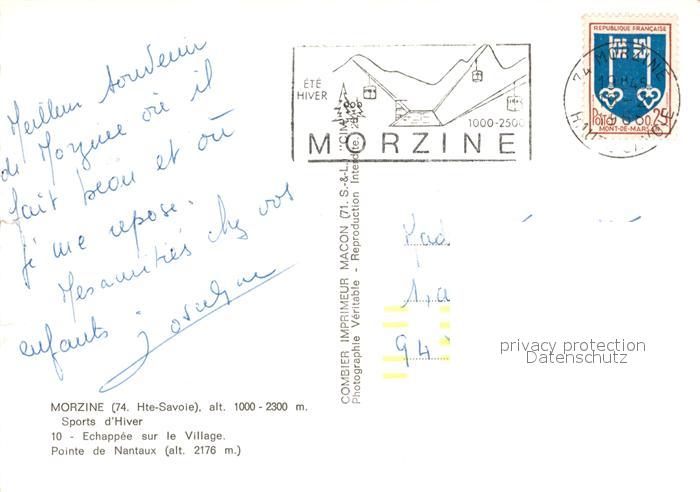 Meilleur souvenir
de Morzine où il
fait beau et où
je me repose.
Mes amitiés chez vos
enfants Josiane
MORZINE (74. Hte-Savoie), alt. 1000 - 2300 m.
Sports d'Hiver
10 - Echappée sur le Village.
Pointe de Nantaux (alt. 2176 m.)
COMBIER IMPRIMEUR MACON (71. S.-&-L.)
Photographie Véritable - Reproduction Interdite.
ÉTÉ
HIVER
1000-2500
MORZINE
REPUBLIQUE FRANÇAISE
Postes 0,25
MONT-DE-MARSAN
74 MORZINE
Mad
1, a
94
privacy protection
Datenschutz